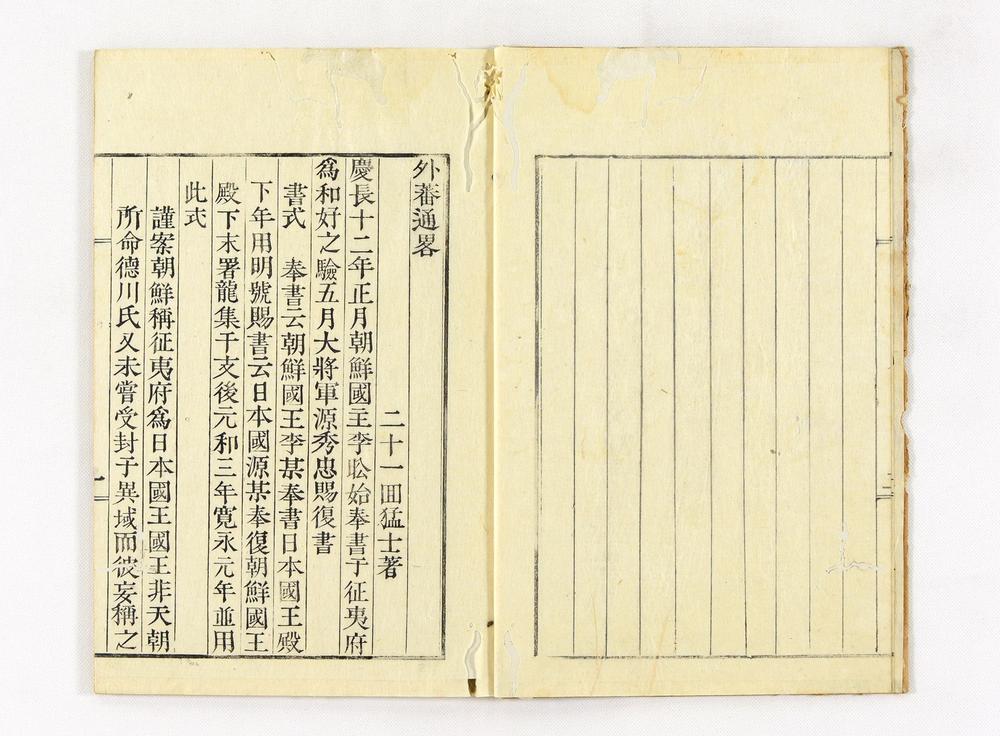 外蕃通畧
二十一囬猛士著
慶長十二年正月朝鮮國主李昖始奉書于征夷府
爲和好之驗五月大將軍源秀忠賜復書
書式　奉書云朝鮮國王李某奉書日本國王殿
下年用明號賜書云日本國源某奉復朝鮮國王
殿下末署龍集干支後元和三年寛永元年並用
此式
謹案朝鮮稱征夷府爲日本國王國王非天朝
所命德川氏又未嘗受封于異域而彼妄稱之